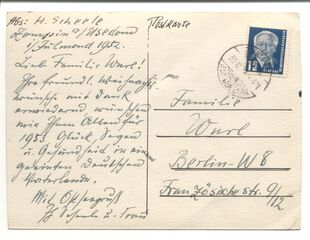 Abs: H. Scheele
Zempin a/Usedom
Postkarte
Liebe Familie Wurl!
Ihre freundl. Weihnachts-
wünsche mit Dank
erwiedernd, wünschen
wir Ihnen Allen für
1953 Glück, Segen
u. Gesundheit in einem
geeinten deutschen
Vaterlande.
Mit Ostseegruß
H. Scheele u. Frau
12
Familie
Wurl
Berlin-W8
Französischestr. 9/12